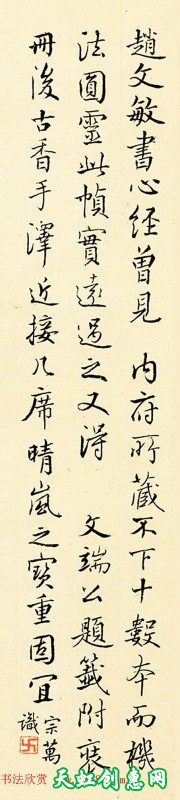 趙文敏書心經曾見 內府所藏不下十數本而機
法圓靈此幀實遠過之又得 文端公題籤附裝
冊後古香手澤近接几席晴嵐之寶重固宜
宗萬
識
书法欣赏
天虹创惠网